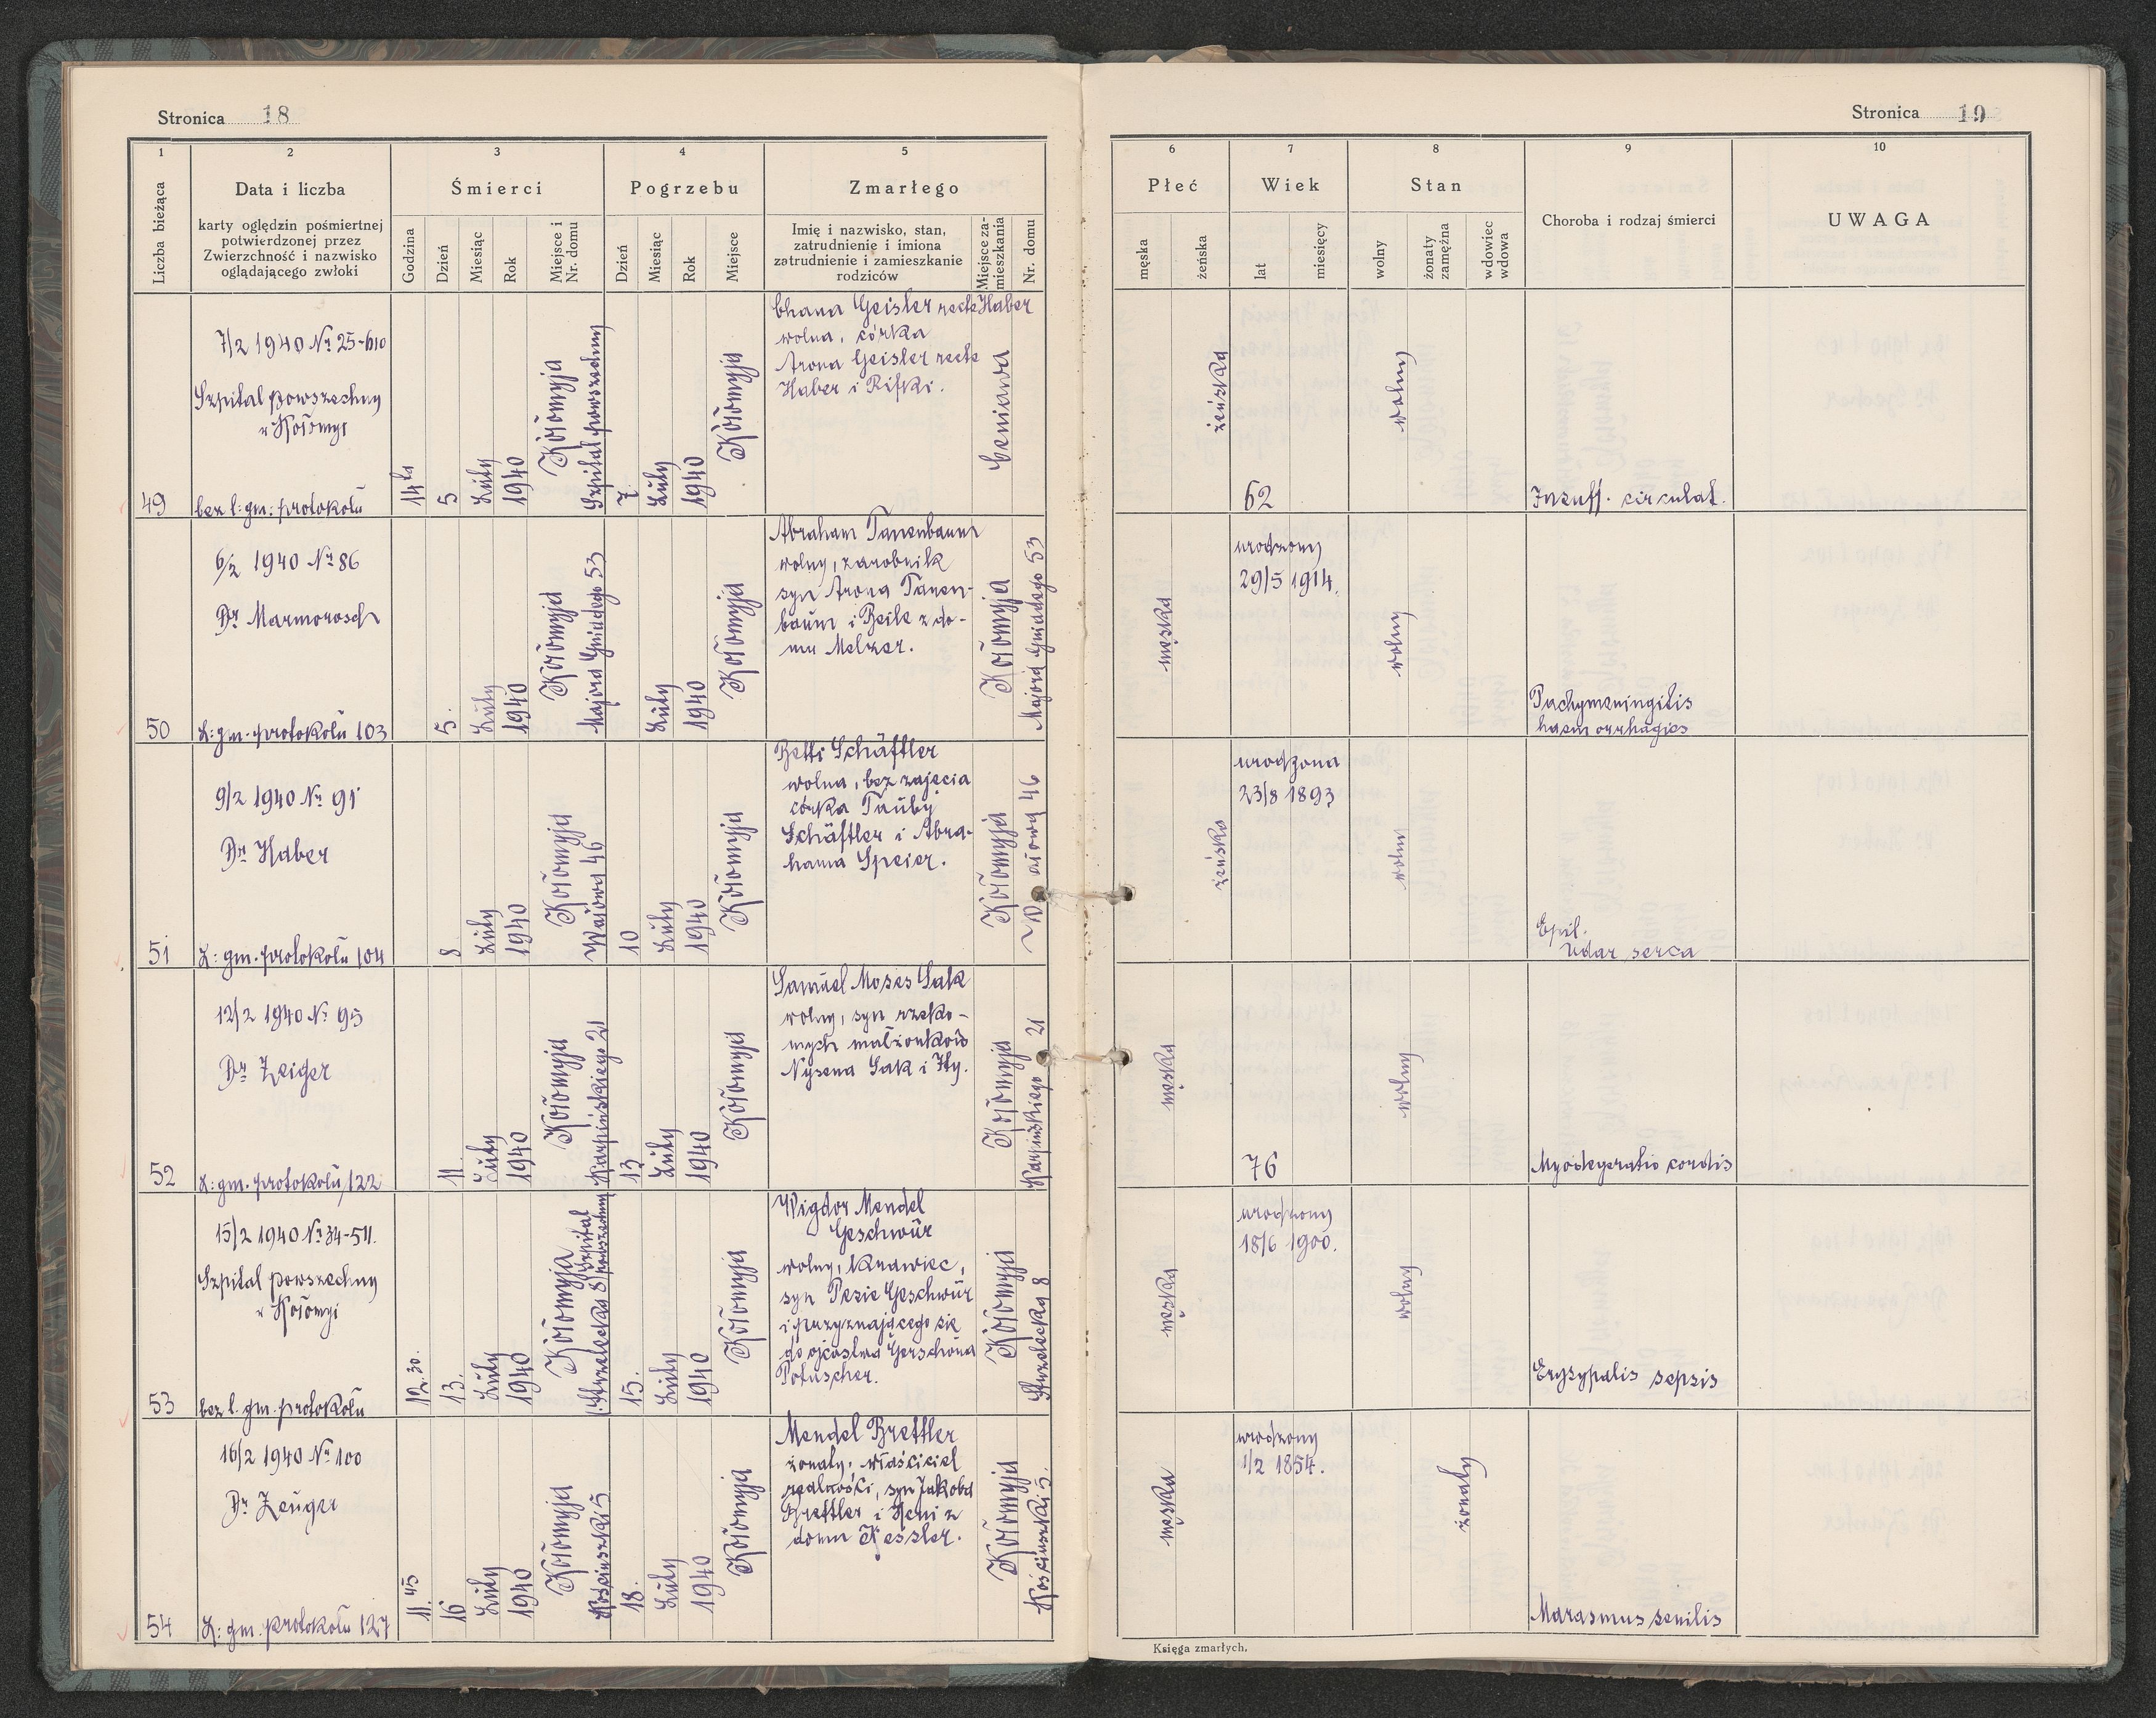 Stronica 18
1 2 3 4 5
Liczba bieżąca
Data i liczba
karty oględzin pośmiertnej
potwierdzonej przez
Zwierzchność i nazwisko
oglądającego zwłoki
Śmierci
Godzina
Dzień
Miesiąc
Rok
Miejsce i
Nr. domu
Pogrzebu
Dzień
Miesiąc
Rok
Miejsce
Zmarłego
Imię i nazwisko, stan,
zatrudnienie i imiona
zatrudnienie i zamieszkanie
rodziców
Miejsce za-
mieszkania
Nr. domu
Stronica 19
6 7 8 9 10
Płeć
męska
żeńska
Wiek
lat
miesięcy
Stan
wolny
żonaty
zamężna
wdowiec
wdowa
Choroba i rodzaj śmierci
UWAGA
49
7/2 1940 Nr 25-610
Szpital powszechny
w Kołomyi
bez l: gm: protokołu
14ta
5
Luty
1940
Kołomyja
Szpital powszechny
7
Luty
1940
Kołomyja
Chana Geisler recte Haber
wolna, córka
Arona Geisler recte
Haber i Rifki.
Ceniawa
żeńska
62
wolny
Insuff. circulat.
50
6/2 1940 Nr 86
Dr Marmorosch
L: gm. protokołu 103
5.
Luty
1940
Kołomyja
Majora Gniadego 53
Luty
1940
Kołomyja
Abraham Tanenbaum
wolny, zarobnik
syn Arona Tanen-
baum i Beile z do-
mu Melzer.
Kołomyja
Majora Gniadego 53
męska
urodzony
29/5 1914.
wolny
Pachymeningitis
haemorrhagics
51
9/2 1940 Nr 91
Dr Haber
L: gm. protokołu 104
8
Luty
1940
Kołomyja
Wałowa 46
10
Luty
1940
Kołomyja
Betti Schäftler
wolna, bez zajęcia
córka Tauby
Schäftler i Abra-
hama Speier.
Kołomyja
46
żeńska
urodzona
23/8 1893
wolny
Epil.
Udar serca
52
12/2 1940 Nr 95
Dr Zeiger
L: gm. protokołu 122
11.
Luty
1940
Kołomyja
Karpińskiego 21
13
Luty
1940
Kołomyja
Samuel Moses Sak
wolny, syn rzeko-
mych małżonków
Nysena Sak i Ity.
Kołomyja
Karpińskiego 21
męska
76
wolny
Myodegeratio cordis
53
15/2 1940 Nr 34-511.
Szpital powszechny
w Kołomyi
bez l. gm. protokołu
12.30.
13.
Luty
1940
Kołomyja
Strzelecka 8
Szpital
powszechny
15.
Luty
1940
Kołomyja
Wigdor Mendel
Geschwür
wolny, krawiec,
syn Pesie Geschwür
i przyznającego się
do ojcostwa Gerschona
Potuscher.
Kołomyja
Strzelecka 8
męska
urodzony
18/6 1900.
wolny
Erysypalis sepsis
54
16/2 1940 Nr 100
Dr Zeuger
L: gm. protokołu 127
11.45
16
Luty
1940
Kołomyja
Kościuszki 5
18.
Luty
1940
Kołomyja
Mendel Brettler
żonaty, właściciel
realności, syn Jakoba
Brettler i Reni z
domu Kessler.
Kołomyja
Kościuszki 5.
męska
urodzony
1/2 1854.
żonaty
Marasmus senilis
Księga zmarłych.